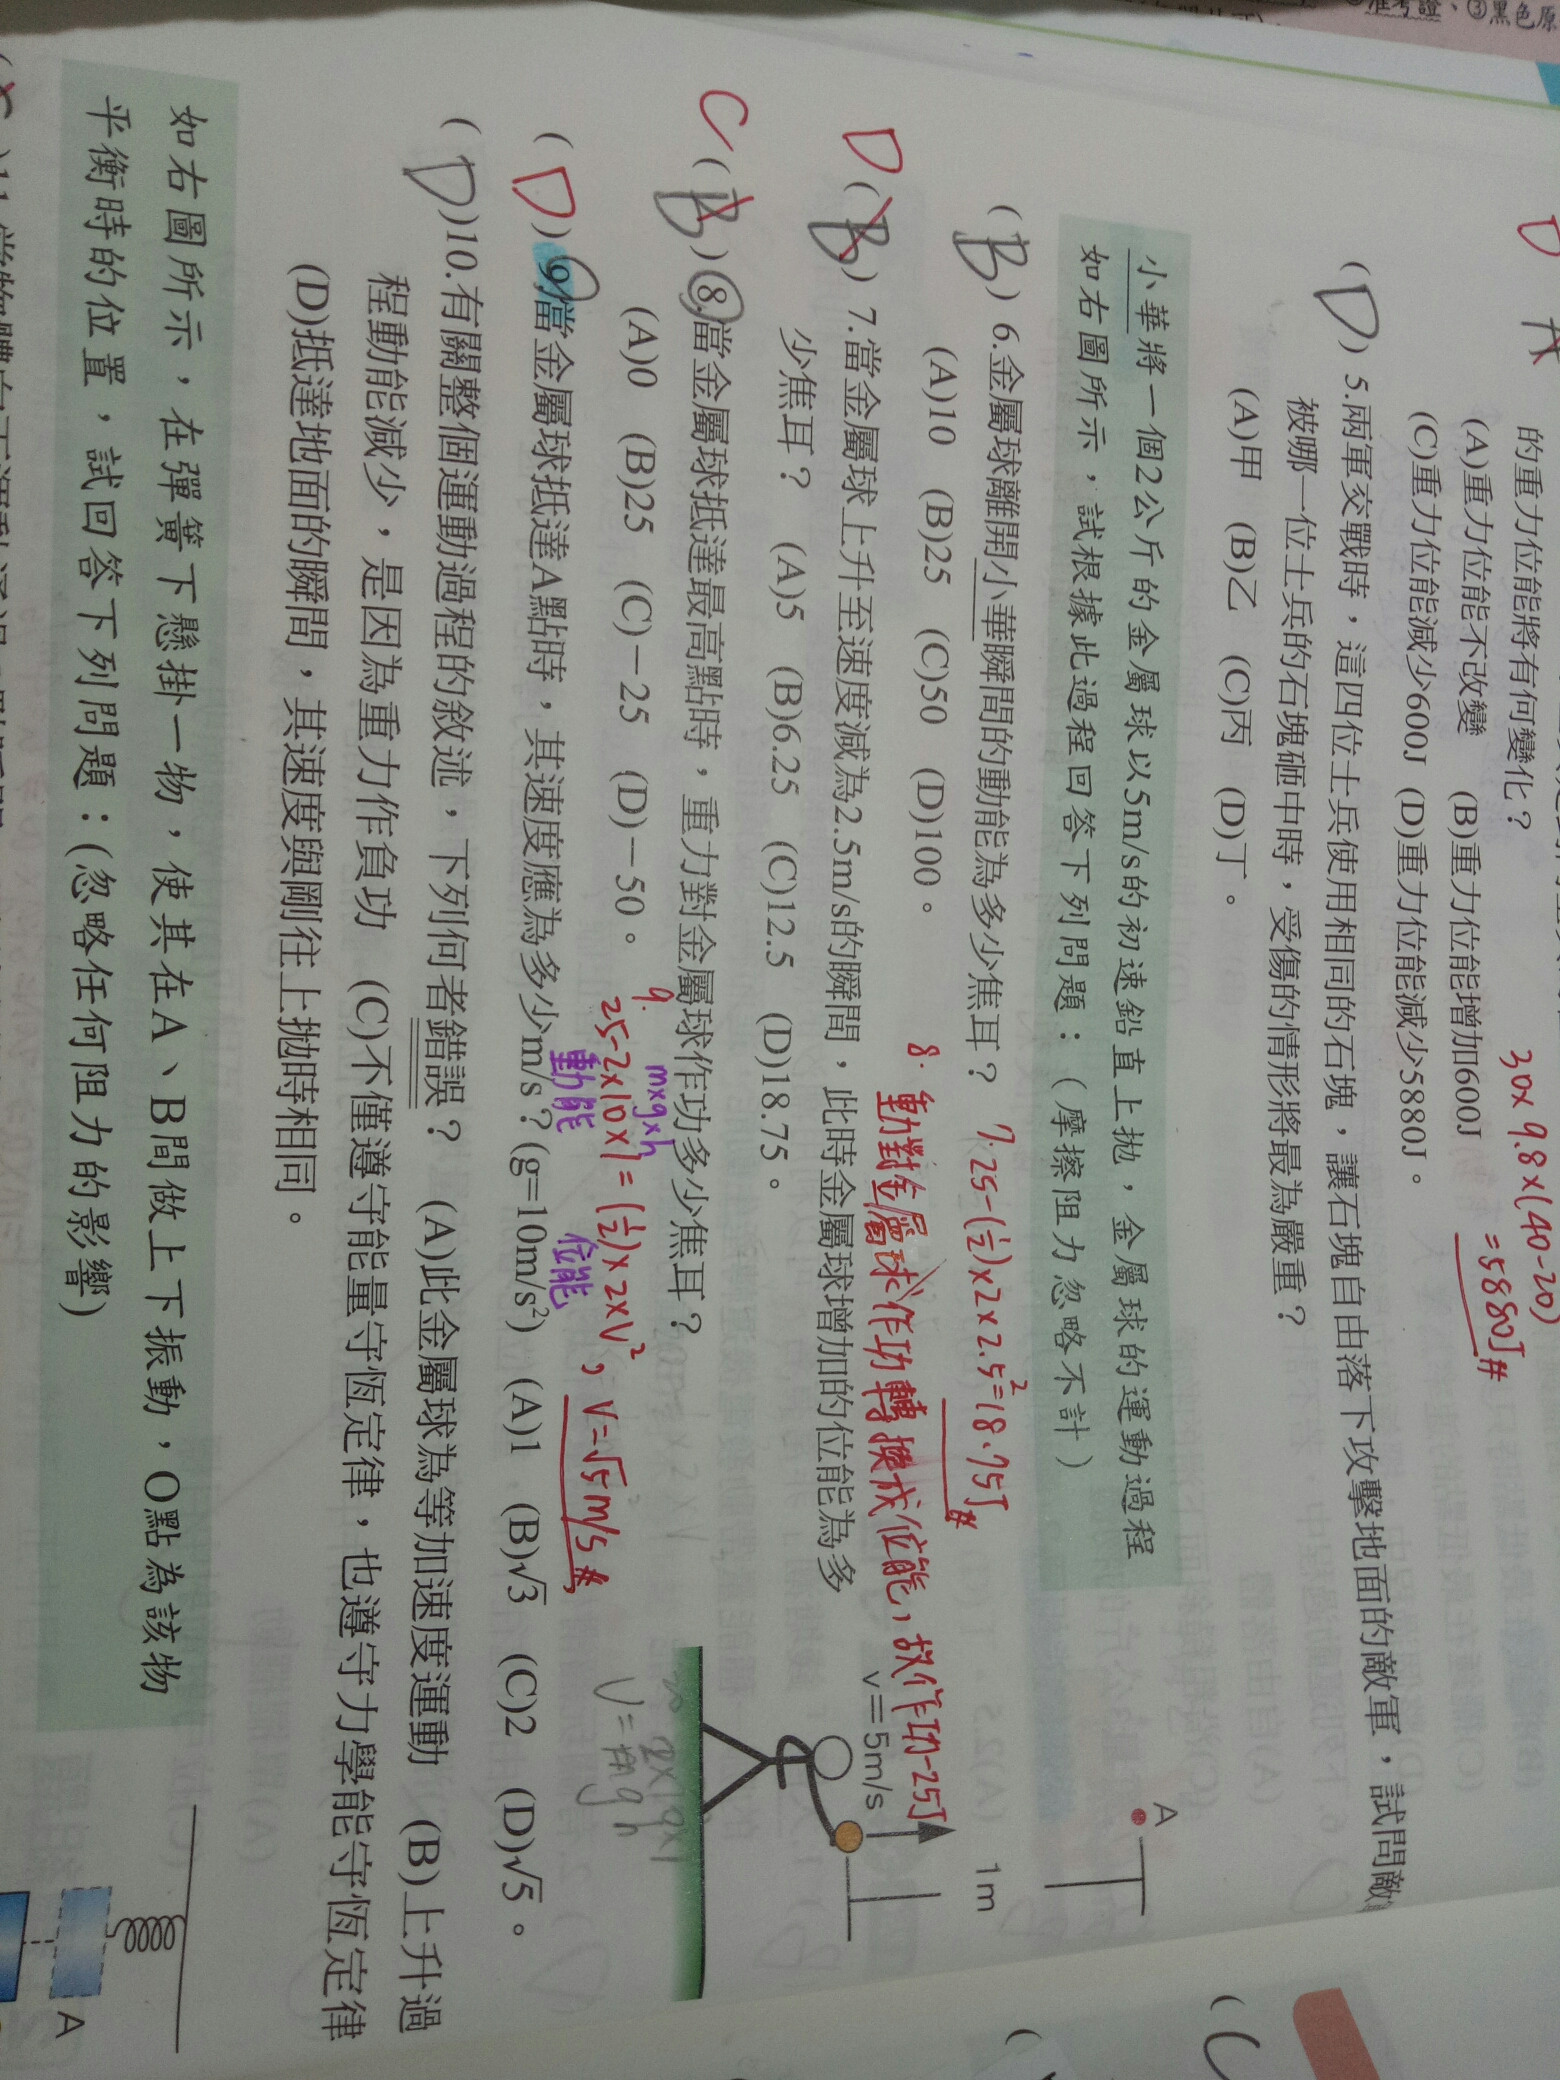 准考證、③黑色原
的重力位能將有何變化？
(A)重力位能不改變 (B)重力位能增加600J
(C)重力位能減少600J (D)重力位能減少5880J。
30×9.8×(40-20)
=5880J#
(D) 5.兩軍交戰時，這四位士兵使用相同的石塊，讓石塊自由落下攻擊地面的敵軍，試問敵
被哪一位士兵的石塊砸中時，受傷的情形將最為嚴重？
(A)甲 (B)乙 (C)丙 (D)丁。
小華將一個2公斤的金屬球以5m/s的初速鉛直上拋，金屬球的運動過程
如右圖所示，試根據此過程回答下列問題：（摩擦阻力忽略不計）
(B) 6.金屬球離開小華瞬間的動能為多少焦耳？
(A)10 (B)25 (C)50 (D)100。
7.25-(½)×2×2.5²=18.75J#
D(B) 7.當金屬球上升至速度減為2.5m/s的瞬間，此時金屬球增加的位能為多
少焦耳？ (A)5 (B)6.25 (C)12.5 (D)18.75。
8.動對金屬球作功轉換成位能，故作功-25J
C(B) 8.當金屬球抵達最高點時，重力對金屬球作功多少焦耳？
(A)0 (B)25 (C)－25 (D)－50。
9. m×g×h
25-2×10×1=(½)×2×V²，V=√5m/s#
動能 位能
(D) 9.當金屬球抵達A點時，其速度應為多少m/s？(g=10m/s²) (A)1 (B)√3 (C)2 (D)√5。
(D)10.有關整個運動過程的敘述，下列何者錯誤？ (A)此金屬球為等加速度運動 (B)上升過
程動能減少，是因為重力作負功 (C)不僅遵守能量守恆定律，也遵守力學能守恆定律
(D)抵達地面的瞬間，其速度與剛往上拋時相同。
A
1m
v=5m/s
2×10×1
V=mgh
如右圖所示，在彈簧下懸掛一物，使其在A、B間做上下振動，O點為該物
平衡時的位置，試回答下列問題：(忽略任何阻力的影響)
A